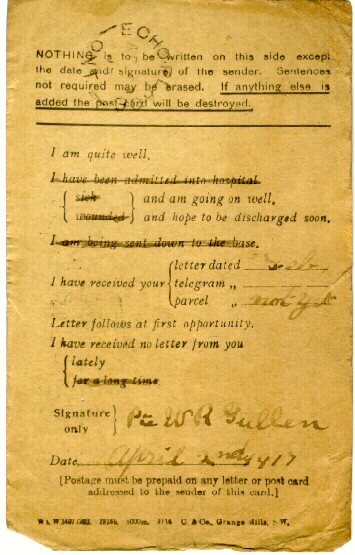 ECHO
NOTHING is to be written on this side except
the date and signature of the sender. Sentences
not required may be erased. If anything else is
added the post card will be destroyed.
I am quite well.
I have been admitted into hospital
sick and am going on well.
wounded and hope to be discharged soon.
I am being sent down to the base.
letter dated
I have received your telegram „
parcel „ not yet
Letter follows at first opportunity.
I have received no letter from you
lately
for a long time
Signature only Pte W R Gullen
Date April 2nd 1917
[Postage must be prepaid on any letter or post card
addressed to the sender of this card.]
5000m. 9/16 C. & Co., Grange Mills, S.W.